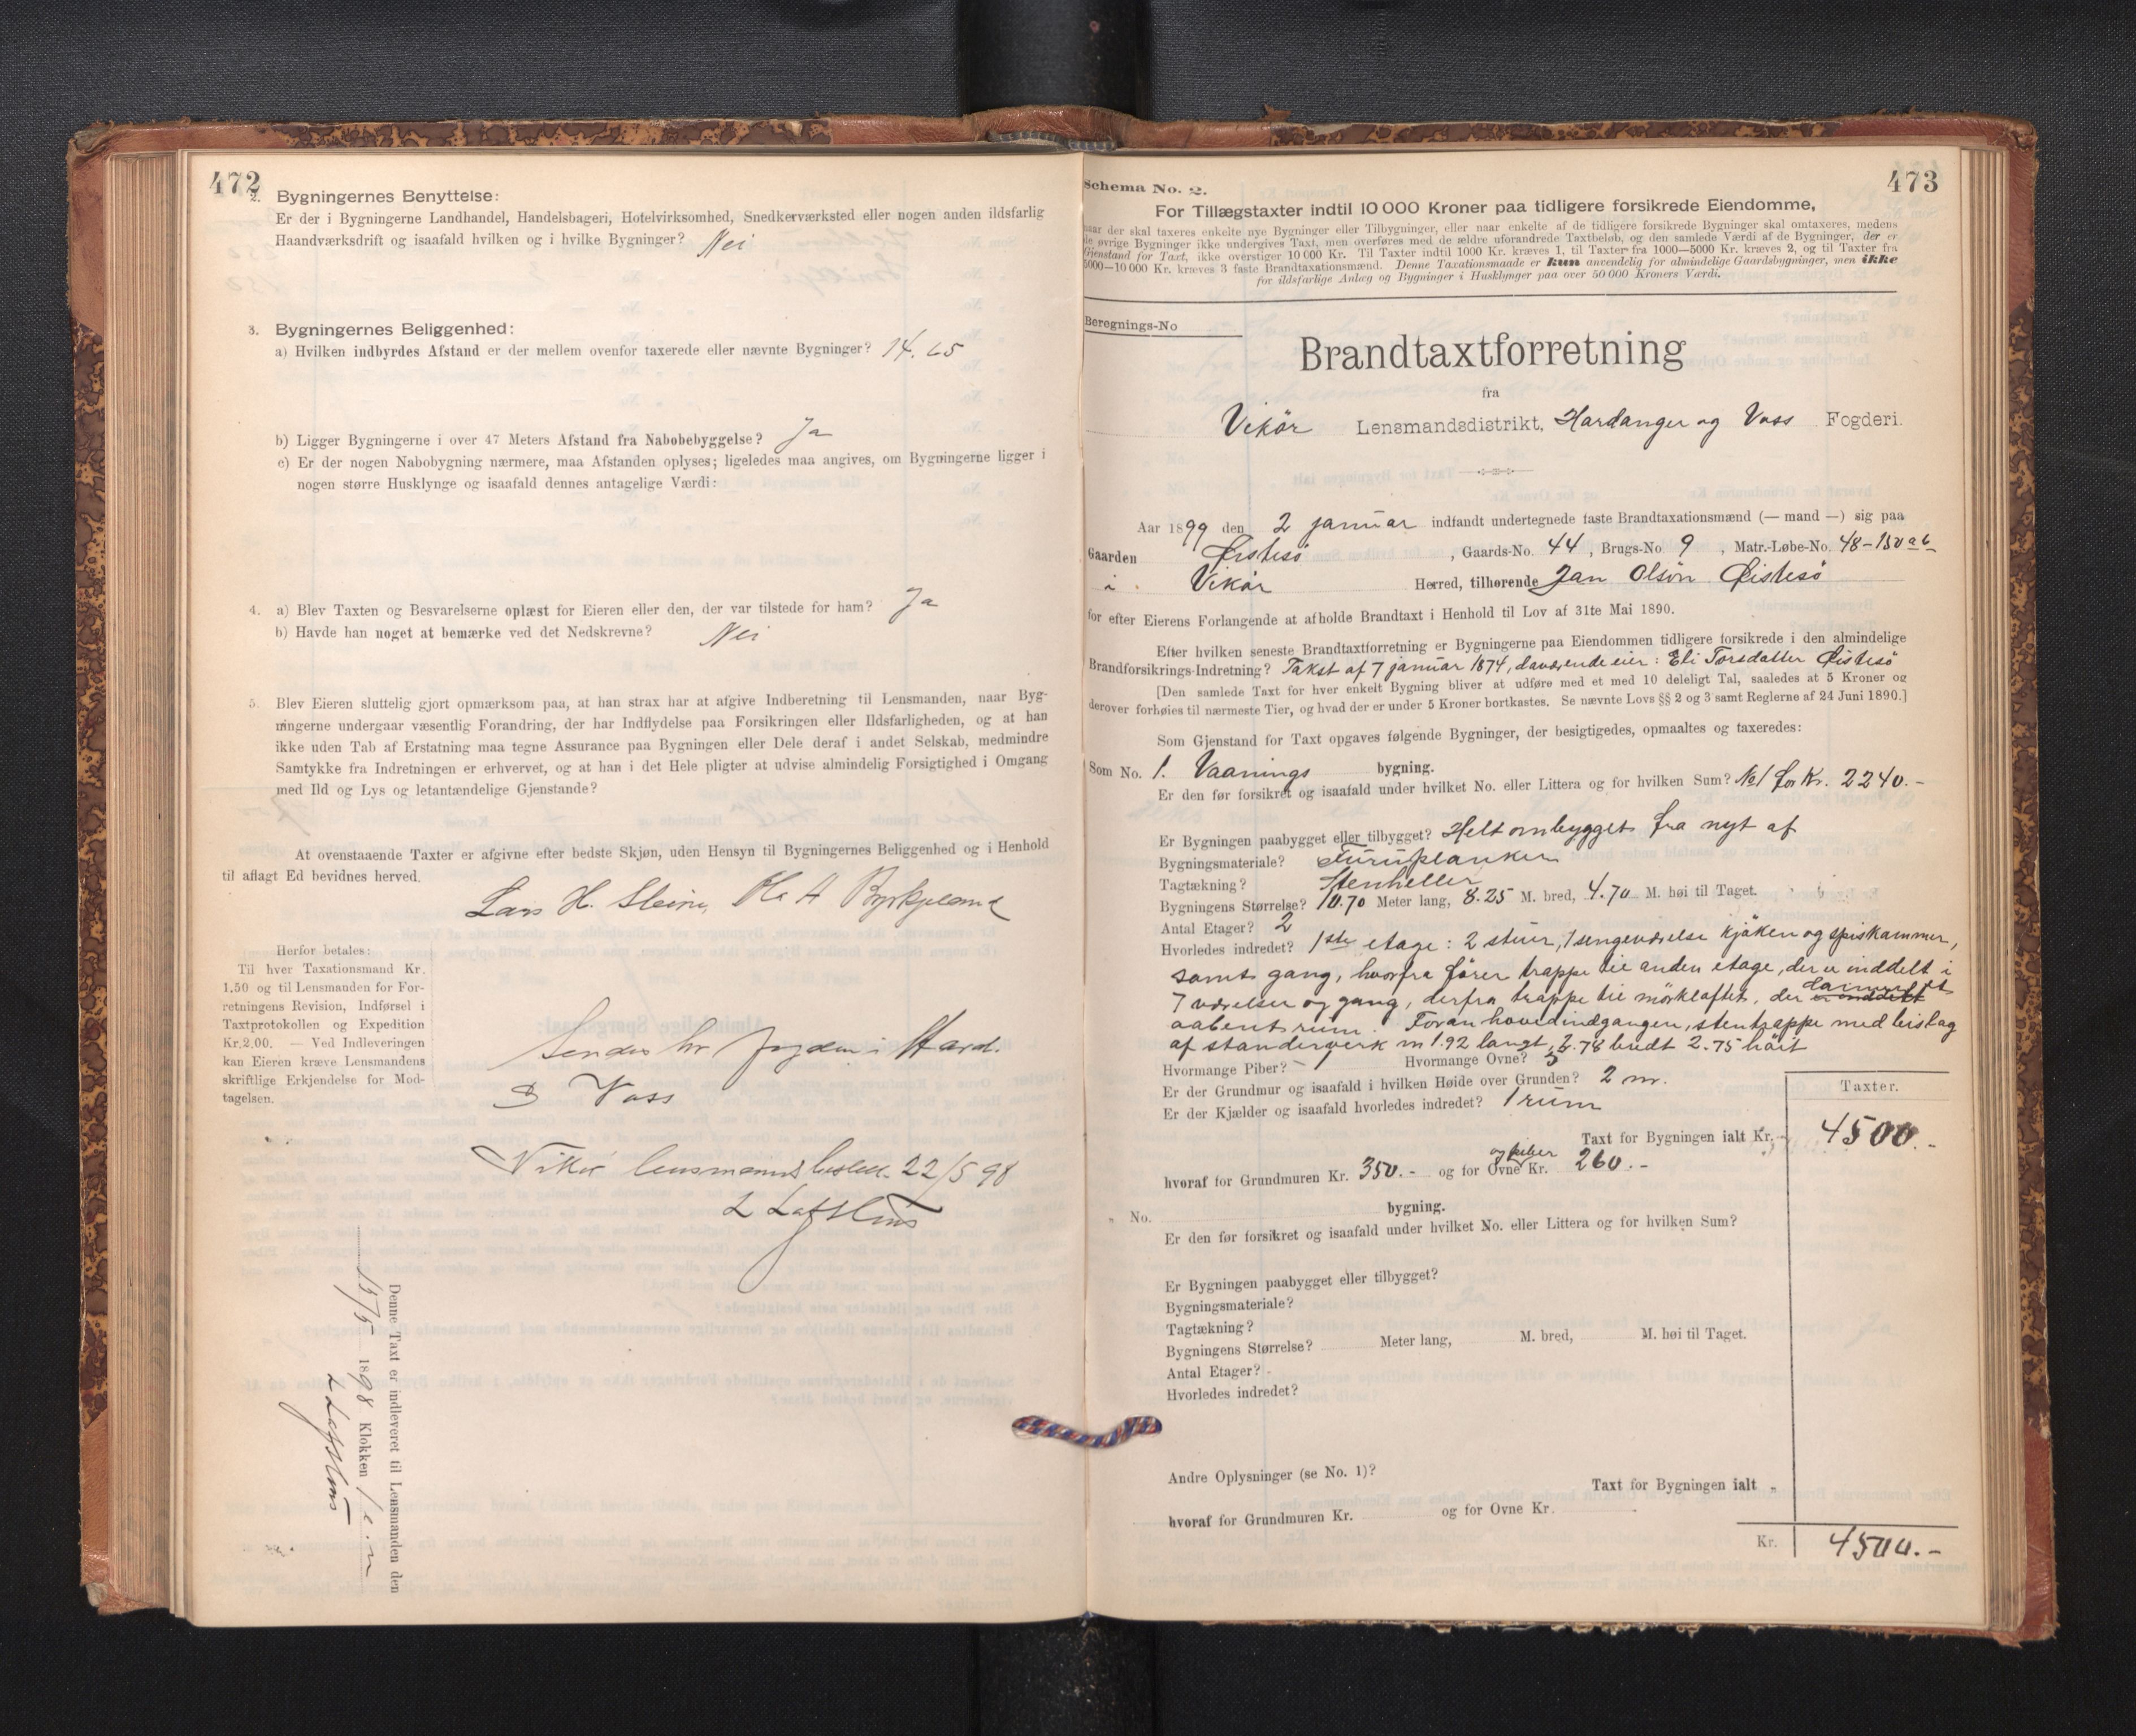 472
2. Bygningernes Benyttelse:
Er der i Bygningerne Landhandel, Handelsbageri, Hotelvirksomhed, Snedkerværksted eller nogen anden ildsfarlig
Haandværksdrift og isaafald hvilken og i hvilke Bygninger? Nei
3. Bygningernes Beliggenhed:
a) Hvilken indbyrdes Afstand er der mellem ovenfor taxerede eller nævnte Bygninger? 14.65
b) Ligger Bygningerne i over 47 Meters Afstand fra Nabobebyggelse? Ja
c) Er der nogen Nabobygning nærmere, maa Afstanden oplyses; ligeledes maa angives, om Bygningerne ligger i
nogen større Husklynge og isaafald dennes antagelige Værdi:
4. a) Blev Taxten og Besvarelserne oplæst for Eieren eller den, der var tilstede for ham? Ja
b) Havde han noget at bemærke ved det Nedskrevne? Nei
5. Blev Eieren sluttelig gjort opmærksom paa, at han strax har at afgive Indberetning til Lensmanden, naar Byg-
ningerne undergaar væsentlig Forandring, der har Indflydelse paa Forsikringen eller Ildsfarligheden, og at han
ikke uden Tab af Erstatning maa tegne Assurance paa Bygningen eller Dele deraf i andet Selskab, medmindre
Samtykke fra Indretningen er erhvervet, og at han i det Hele pligter at udvise almindelig Forsigtighed i Omgang
med Ild og Lys og letantændelige Gjenstande?
At ovenstaaende Taxter er afgivne efter bedste Skjøn, uden Hensyn til Bygningernes Beliggenhed og i Henhold
til aflagt Ed bevidnes herved.
Lars H. Steine, Ole A Byrkjeland
Herfor betales:
Til hver Taxationsmand Kr.
1,50 og til Lensmanden for For-
retningens Revision, Indførsel i
Taxtprotokollen og Expedition
Kr. 2,00. — Ved Indleveringen
kan Eieren kræve Lensmandens
skriftlige Erkjendelse for Mod-
tagelsen.
Sendes hr fogden i Hard.
& Voss
Vikør lensmannsbestill. 22/5 98
L Lofthus
Denne Taxt er indleveret til Lensmanden den
15/5 1898 Klokken 1 e.m
L Lofthus
473
Schema No. 2.
For Tillægstaxter indtil 10 000 Kroner paa tidligere forsikrede Eiendomme,
naar der skal taxeres enkelte nye Bygninger eller Tilbygninger, eller naar enkelte af de tidligere forsikrede Bygninger skal omtaxeres, medens
de øvrige Bygninger ikke undergives Taxt, men overføres med de ældre uforandrede Taxtbeløb, og den samlede Værdi af de Bygninger, der er
Gjenstand for Taxt, ikke overstiger 10 000 Kr. Til Taxter indtil 1000 Kr. kræves 1, til Taxter fra 1000—5000 Kr. kræves 2, og til Taxter fra
5000—10 000 Kr. kræves 3 faste Brandtaxationsmænd. Denne Taxationsmaade er kun anvendelig for almindelige Gaardsbygninger, men ikke
for ildsfarlige Anlæg og Bygninger i Husklynger paa over 50 000 Kroners Værdi.
Beregnings-No
Brandtaxtforretning
fra
Vikör Lensmandsdistrikt, Hardanger og Voss Fogderi.
Aar 1899 den 2 januar indfandt undertegnede faste Brandtaxationsmænd (— mand —) sig paa
Gaarden Östesö, Gaards-No. 44, Brugs-No 9, Matr.-Løbe-No. 48-150 a b
i Vikör Herred, tilhørende Jan Olsön Öistesö
for efter Eierens Forlangende at afholde Brandtaxt i Henhold til Lov af 31te Mai 1890.
Efter hvilken seneste Brandtaxtforretning er Bygningerne paa Eiendommen tidligere forsikrede i den almindelige
Brandforsikrings-Indretning? Takst af 7 januar 1874, daværende eier: Eli Torsdatter Öistesö
[Den samlede Taxt for hver enkelt Bygning bliver at udføre med et med 10 deleligt Tal, saaledes at 5 Kroner og
derover forhøies til nærmeste Tier, og hvad der er under 5 Kroner bortkastes. Se nævnte Lovs §§ 2 og 3 samt Reglerne af 24 Juni 1890.]
Som Gjenstand for Taxt opgaves følgende Bygninger, der besigtigedes, opmaaltes og taxeredes:
Som No. 1. Vaanings bygning.
Er den før forsikret og isaafald under hvilket No. eller Littera og for hvilken Sum? No 1 for Kr. 2240.-
Er Bygningen paabygget eller tilbygget? Helt ombygget fra nyt af
Bygningsmateriale? Furuplanker
Tagtækning? Stenheller
Bygningens Størrelse? 10.70 Meter lang, 8.25 M. bred, 4.70 M. høi til Taget.
Antal Etager? 2
Hvorledes indredet? 1ste etage: 2 stuer, 1 sengeværelse kjöken og spiskammer,
samt gang, hvorfra förer trappe til anden etage, der er inddelt i
7 værelser og gang, derfra trappe til mörkloftet, der er inddelt
aabent rum. Foran hovedindgangen, stentrappe med bislag
af standerverk m 1.92 langt, 2.78 bredt 2.75 höit
Hvormange Piber? 1 Hvormange Ovne? 3
Er der Grundmur og isaafald i hvilken Høide over Grunden? 2 m.
Er der Kjælder og isaafald hvorledes indredet? 1 rum
Taxter.
Taxt for Bygningen ialt Kr. 4500.-
og piber
hvoraf for Grundmuren Kr. 350.- og for Ovne Kr. 260.-
" No. bygning.
Er den før forsikret og isaafald under hvilket No. eller Littera og for hvilken Sum?
Er Bygningen paabygget eller tilbygget?
Bygningsmateriale?
Tagtækning?
Bygningens Størrelse? Meter lang, M. bred, M. høi til Taget.
Antal Etager?
Hvorledes indredet?
Andre Oplysninger (se No. 1)?
Taxt for Bygningen ialt "
hvoraf for Grundmuren Kr. og for Ovne Kr.
Kr. 4500.-